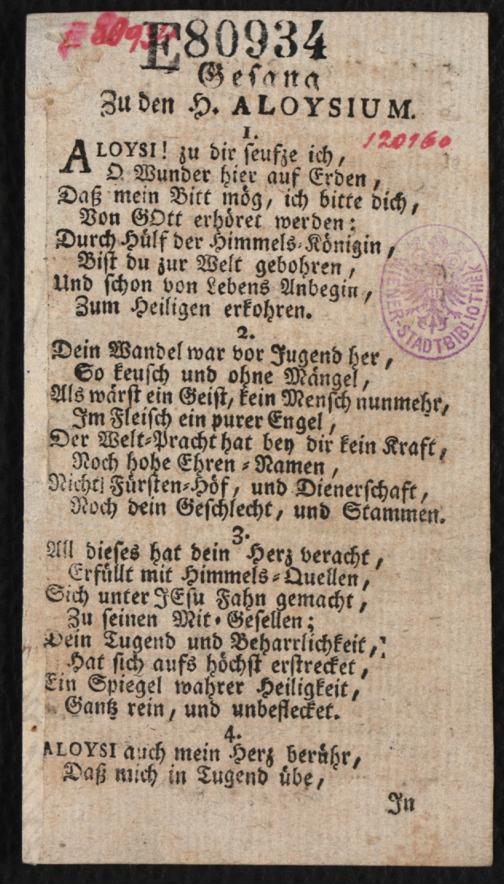 E 80934
E80934
Gesang
Zu den H. ALOYSIUM.
120160
1.
ALOYSI! zu dir seufze ich,
O Wunder hier auf Erden,
Daß mein Bitt mög, ich bitte dich,
Von GOtt erhöret werden:
Durch Hülf der Himmels-Königin,
Bist du zur Welt gebohren,
Und schon von Lebens Anbegin,
Zum Heiligen erkohren.
WIENER-STADTBIBLIOTHEK
2.
Dein Wandel war vor Jugend her,
So keusch und ohne Mängel,
Als wärst ein Geist, kein Mensch nunmehr,
Im Fleisch ein purer Engel,
Der Welt-Pracht hat bey dir kein Kraft,
Noch hohe Ehren-Namen,
Nicht Fürsten-Höf, und Dienerschaft,
Noch dein Geschlecht, und Stammen.
3.
All dieses hat dein Herz veracht,
Erfüllt mit Himmels-Quellen,
Sich unter JEsu Fahn gemacht,
Zu seinen Mit-Gesellen;
Dein Tugend und Beharrlichkeit,
Hat sich aufs höchst erstrecket,
Ein Spiegel wahrer Heiligkeit,
Gantz rein, und unbeflecket.
4.
ALOYSI auch mein Herz berühr,
Daß mich in Tugend übe,
In